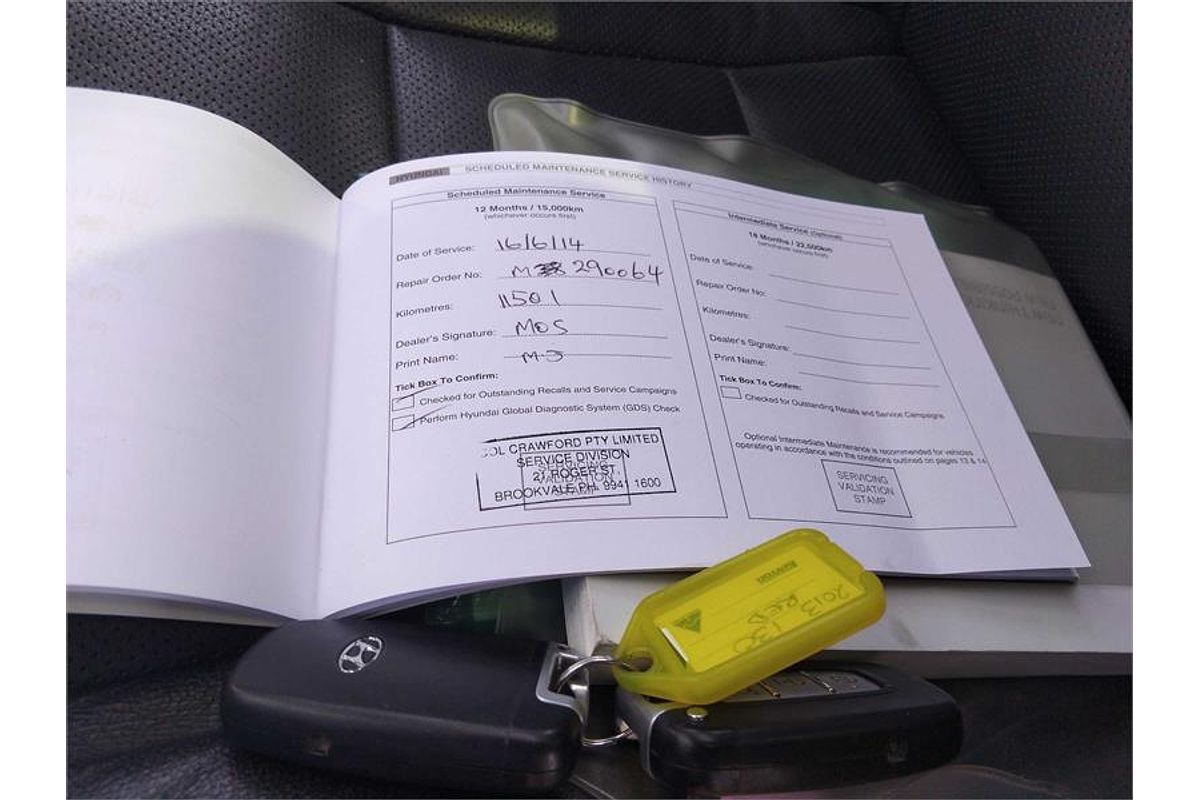 HYUNDAI SCHEDULED MAINTENANCE SERVICE HISTORY
Scheduled Maintenance Service
12 Months / 15,000km
(whichever occurs first)
Date of Service: 16/6/14
Repair Order No: M 290064
Kilometres: 11501
Dealer's Signature: MOS
Print Name: M-J
Tick Box To Confirm:
Checked for Outstanding Recalls and Service Campaigns
Perform Hyundai Global Diagnostic System (GDS) Check
COL CRAWFORD PTY LIMITED
SERVICE DIVISION
27 ROGER ST,
BROOKVALE PH. 9941 1600
SERVICING
VALIDATION
STAMP
Intermediate Service (optional)
18 Months / 22,500km
(whichever occurs first)
Date of Service:
Repair Order No:
Kilometres:
Dealer's Signature:
Print Name:
Tick Box To Confirm:
Checked for Outstanding Recalls and Service Campaigns
Optional Intermediate Maintenance is recommended for vehicles
operating in accordance with the conditions outlined on pages 13 & 14
SERVICING
VALIDATION
STAMP
Kevron
2013
Red
i30